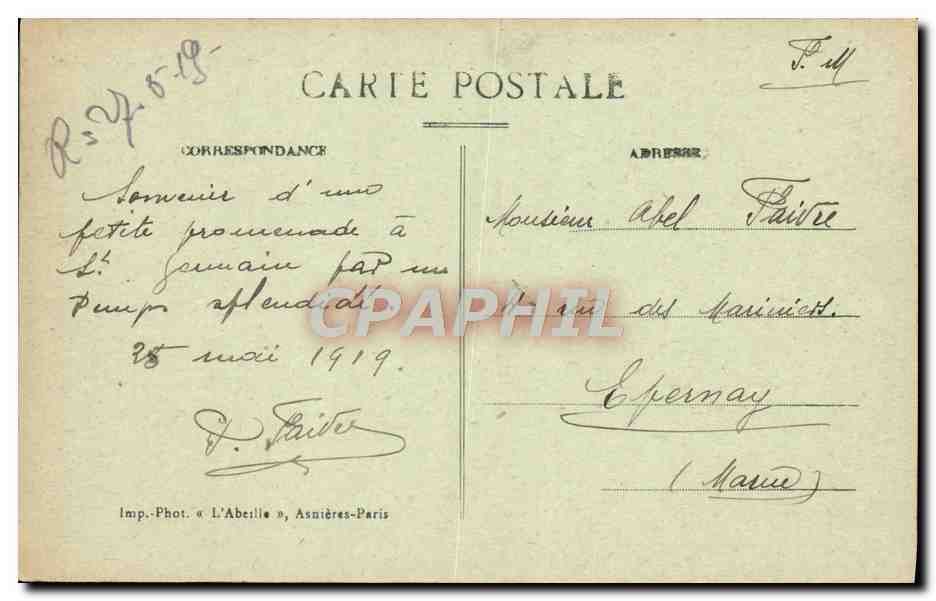 R = 27-5-19-
F. M
CARTE POSTALE
CORRESPONDANCE
Souvenir d'une
petite promenade à
St. Germain par un
temps splendide
25 mai 1919.
P. Faivre
Imp.-Phot. « L'Abeille », Asnières-Paris
ADRESSE
Monsieur Abel Faivre
rue des Mariniers.
Epernay
(Marne)
CPAPHIL